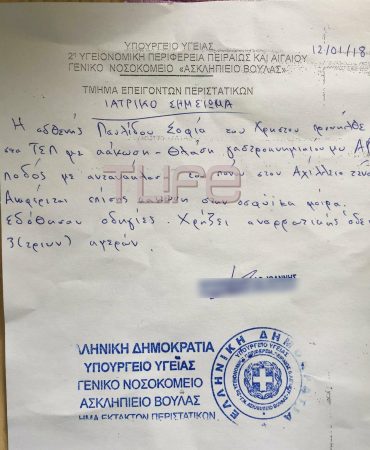 ΥΠΟΥΡΓΕΙΟ ΥΓΕΙΑΣ
2η ΥΓΕΙΟΝΟΜΙΚΗ ΠΕΡΙΦΕΡΕΙΑ ΠΕΙΡΑΙΩΣ ΚΑΙ ΑΙΓΑΙΟΥ
ΓΕΝΙΚΟ ΝΟΣΟΚΟΜΕΙΟ «ΑΣΚΛΗΠΙΕΙΟ ΒΟΥΛΑΣ»
12/01/18
ΤΜΗΜΑ ΕΠΕΙΓΟΝΤΩΝ ΠΕΡΙΣΤΑΤΙΚΩΝ
ΙΑΤΡΙΚΟ ΣΗΜΕΙΩΜΑ
Η ασθενής Παυλίδου Σοφία του Χρήστου προσήλθε
στα ΤΕΠ με κάκωση - θλάση γαστροκνημίου μυ ΑΡ
ποδός με αντανάκλαση του πόνου στον Αχίλλειο τένο
Αναφέρεται επίσης κάκωση στην οσφυϊκή μοίρα.
Εδόθησαν οδηγίες. Χρήζει αναρρωτικής άδει
3(τριών) ημερών.
TLIFE
ΙΩΑΝΝΗΣ
ΛΛΗΝΙΚΗ ΔΗΜΟΚΡΑΤΙΑ
ΥΠΟΥΡΓΕΙΟ ΥΓΕΙΑΣ
ΓΕΝΙΚΟ ΝΟΣΟΚΟΜΕΙΟ
ΑΣΚΛΗΠΙΕΙΟ ΒΟΥΛΑΣ
ΗΜΑ ΕΚΤΑΚΤΩΝ ΠΕΡΙΣΤΑΤΙΚΩΝ
ΕΛΛΗΝΙΚΗ ΔΗΜΟΚΡΑΤΙΑ
ΥΠΟΥΡΓΕΙΟ ΥΓΕΙΑΣ